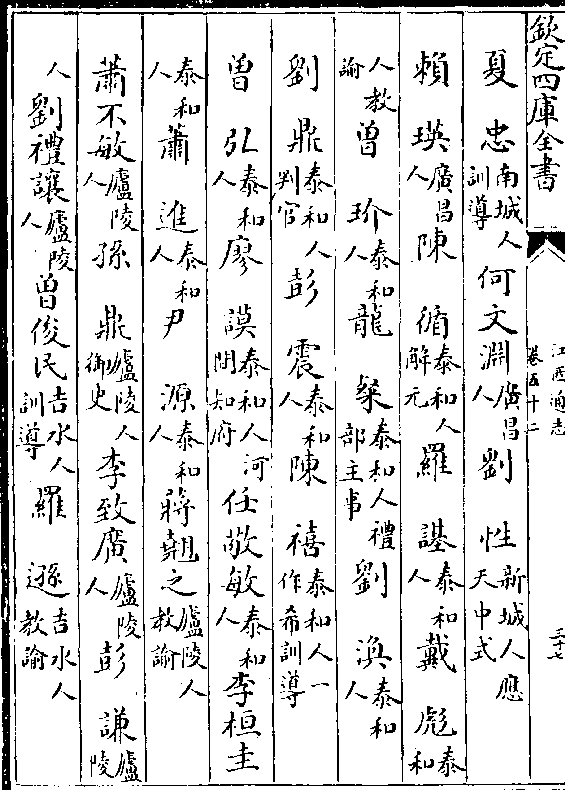 欽定四庫全書 江西通志 卷五十二 三十七
夏忠南城人訓導 何文淵廣昌人 劉性新城人應天中式
賴瑛廣昌人 陳循泰和人解元 羅諶泰和人 戴彪泰和
人教諭 曾玠泰和人 龍粲泰和人禮部主事 劉渙泰和人
劉鼎泰和人判官 彭震泰和人 陳禧泰和人一作希訓導
曾弘泰和人 廖謨泰和人河間知府 任敬敏泰和人 李桓圭
泰和人 蕭進泰和人 尹源泰和人 蔣翹之廬陵人教諭
蕭不敏廬陵人 孫鼎廬陵人御史 李致廣廬陵人 彭謙廬陵
人 劉禮讓廬陵人 曾俊民吉水人訓導 羅遜吉水人教諭